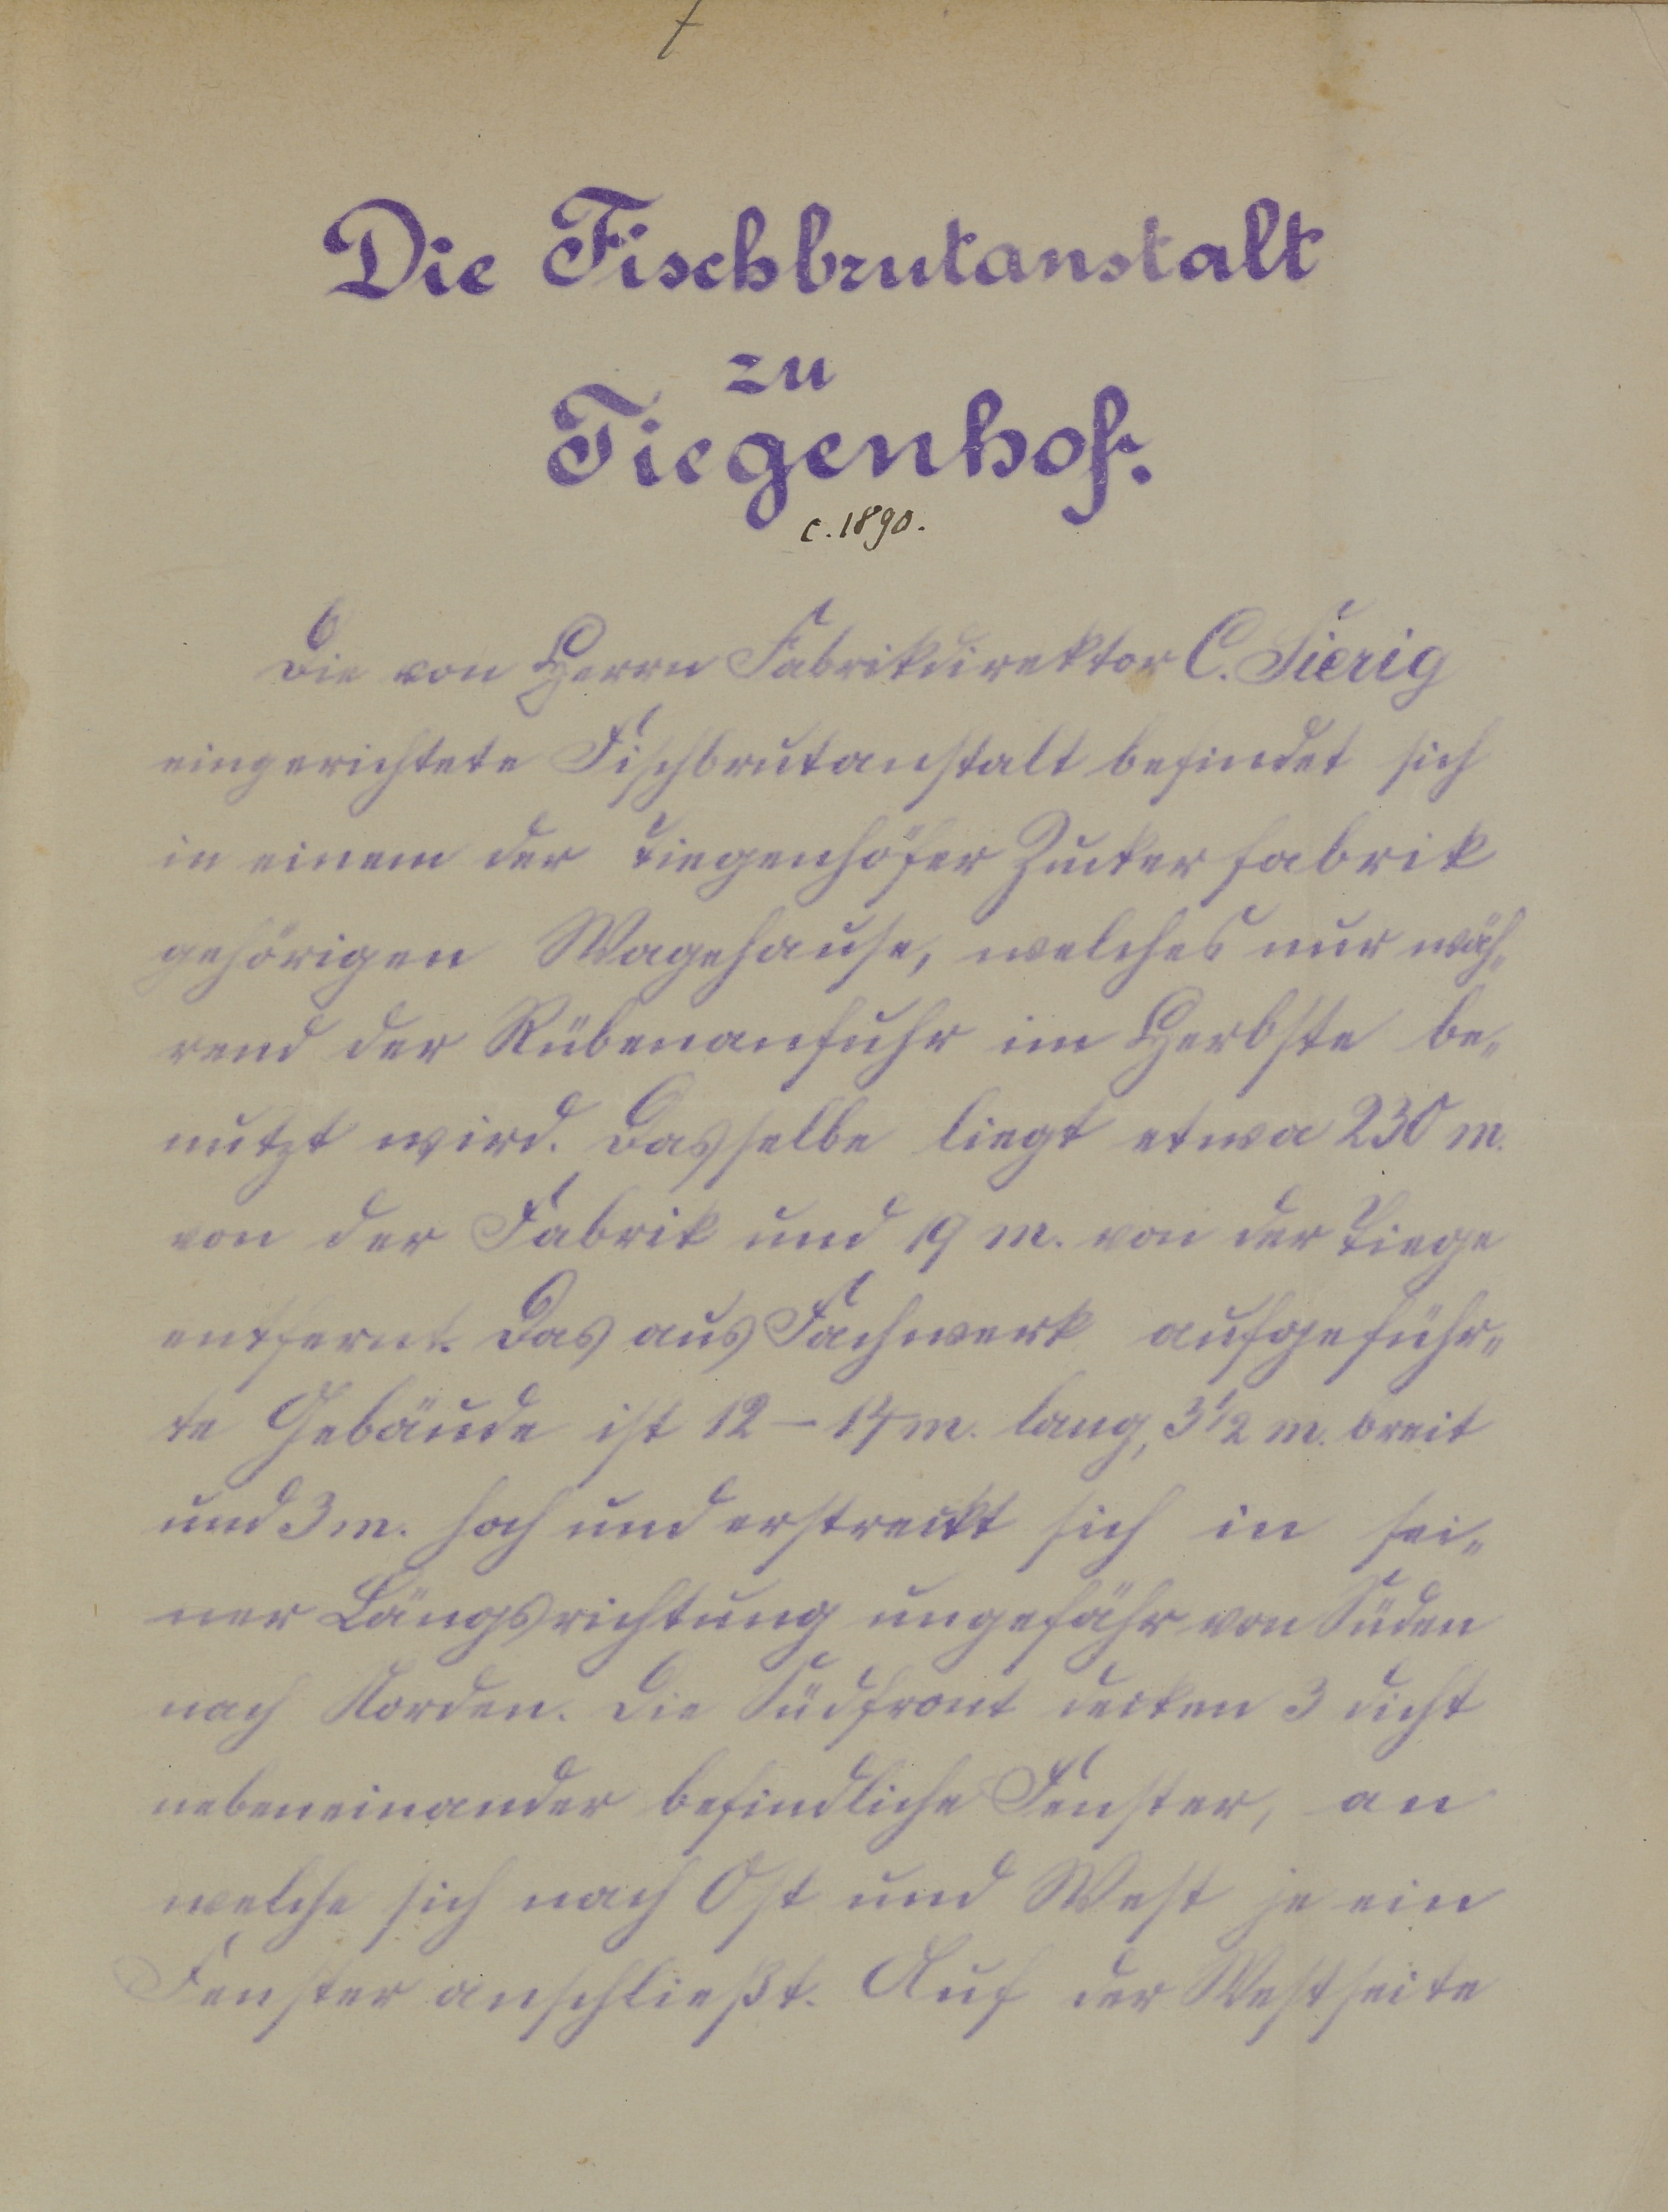 Die Fischbrutanstalt
zu
Tiegenhof.
c. 1890.
Die von Herrn Fabrikdirektor C. Tierig
eingerichtete Fischbrutanstalt befindet sich
in einem der Tiegenhöfer Zuckerfabrik
gehörigen Wagehause, welches nur wäh-
rend der Rübenanfuhr im Herbste be-
nutzt wird. Dasselbe liegt etwa 230 m.
von der Fabrik und 19 m. von der Tiege
entfernt. Das aus Fachwerk aufgeführ-
te Gebäude ist 12 – 14 m. lang, 3 1/2 m. breit
und 3 m. hoch und erstreckt sich in sei-
ner Längsrichtung ungefähr von Süden
nach Norden. Die Südfront decken 3 dicht
nebeneinander befindliche Fenster, an
welche sich nach Ost und West je ein
Fenster anschließt. Auf der Westseite